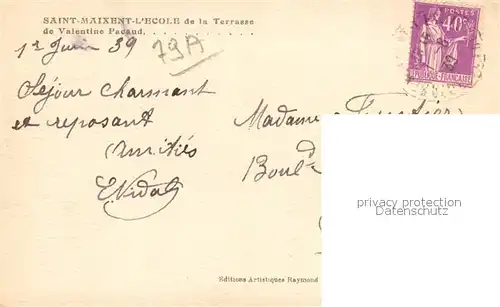 SAINT-MAIXENT-L'ECOLE de la Terrasse
de Valentine Pacaud, . . . . . . . . . . .
1er Juin 39
79A
POSTES
40c
REPUBLIQUE FRANÇAISE
Séjour charmant
et reposant
Amitiés
E. Vidal
Madame
Boul
privacy protection
Datenschutz
Editions Artistiques Raymond